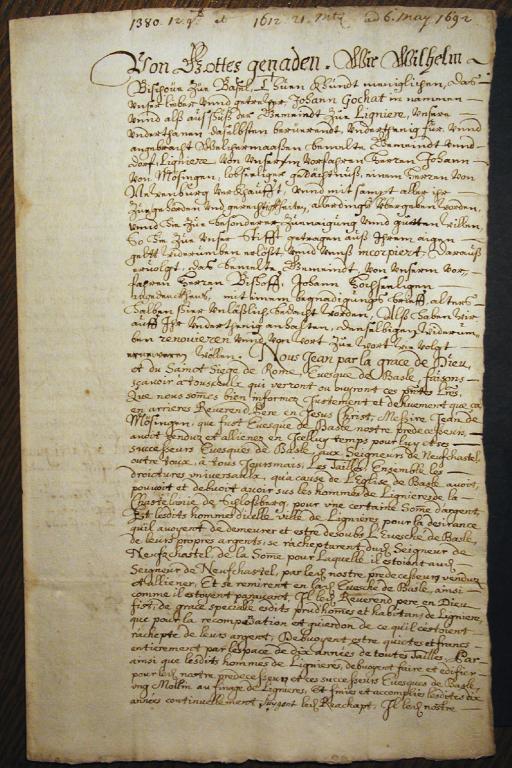 1380. 12. et 1612. 21. ad 6. May 1692
Von Gottes genaden. Wir Wilhelm
Bischove zue Basel, Thuen khundt meniglichen, das
Unser lieber unnd getrewer Johann Gochat in nammen
unnd als ausschuß der Gemeindt zue Ligniere, Unsere
Underthanen daselbsten Underthenig für unnd
angebracht Welchermaassen bemelte Gemeindt unnd
dorf Ligniere von Unserem Vorfahren Herren Johann
von Mösingen, lobseeliger gedächtnuß, einem Herren von
Newenburg verkhaufft, unnd mit sampt aller ihr
Zuegehörden und gerechtigkheiten, allerdings übergeben worden,
unnd Sie zue besonderer Zuenaigung unnd guetten willen,
So Sie zue unser Stifft getragen auß Ihrem aigen
geltt widerumben erlößt, unnd unnß incorpiert, Darauß
ervolgt, das bemelte Gemeindt von unserm Vor-
fahren Herren Bischoff Johann hochseeligen
angedenckhens, mit einem begnadigungs brieff, alters
halben hier unläßlich bedacht worden, Alß haben wir
auff Ihr underthenig anhalten, denselbigen widerum-
ben renovieren unnd von wort zue wort wie volgt
ernewern wöllen. Nous Jean par la grace de Dieu,
et du Sainct Siege de Rome, Evesque de Basle, faisons
sçavoir a touscelz qui verront ou ouyront ces pntes Lres,
Que nous soms bien informez justement et deheuement que ca
en arrieres Reverend Pere en Jesus Christ, Messire Jean de
Mösingen, que fust Evesque de Basle nostre predecesseur,
avoit venduz et allienez en Icelluy temps pour luy et ses
successeurs Evesques de Basle aux Seigneurs de Neufchastel
outre Joux, a tous Joursmais, Les Tailles Ensemble les
droictures universaulx, qu'a cause de L'Eglise de Basle avoit,
pouvoit et debvoit avoir sus les hommes de Lignieres de la
Chastelenie de Schlosberg, pour une certaine Some d'argent,
Et lesdits hommes d'icelle ville de Lignieres pour la desirance
qu'il avoyent de demeurer et estre desoubs L'Evesché de Basle,
de leurs propres argents, se rachepturent dud. Seigneur de
Neufchastel, de la Some pour Laquelle il estoient aud.
Seigneur de Neufchastel, par led. nostre predecesseur venduz
et alliener, Et se remirent en lad. Evesché de Basle, ainsi
comme il estoyent paravant, Il led. Reverend pere en Dieu
fist, de grace speciale esdits prudhomes et habitans de Ligniere,
que pour la recompensation et guierdon de ce qu'il c'estoient
rachepté de leurs argent, Debvoyent estre quictes et francs
entierement par l'espace de dix années de toutes Tailles, Par
ainsi que lesdits hommes de Lignieres, debvoyent faire et edifier
pour led. nostre predecesseur et ces successeurs Evesques de Basle,
ung Molin au finage de Lignieres, Et finies et accomplies lesdites dix
années continuellement suyvent led. Reachapt, Il led. nostre